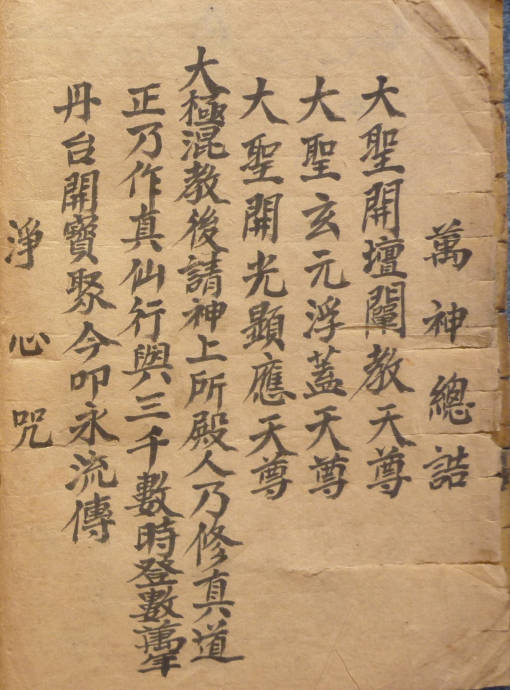 萬神總誥
大聖開壇闡教天尊
大聖玄元浮蓋天尊
大聖開光顯應天尊
大極混教後請神上所殿人乃修真道
正乃作真仙行與三千數時登數萬年
丹台開寶聚今叩永流傳
淨心咒